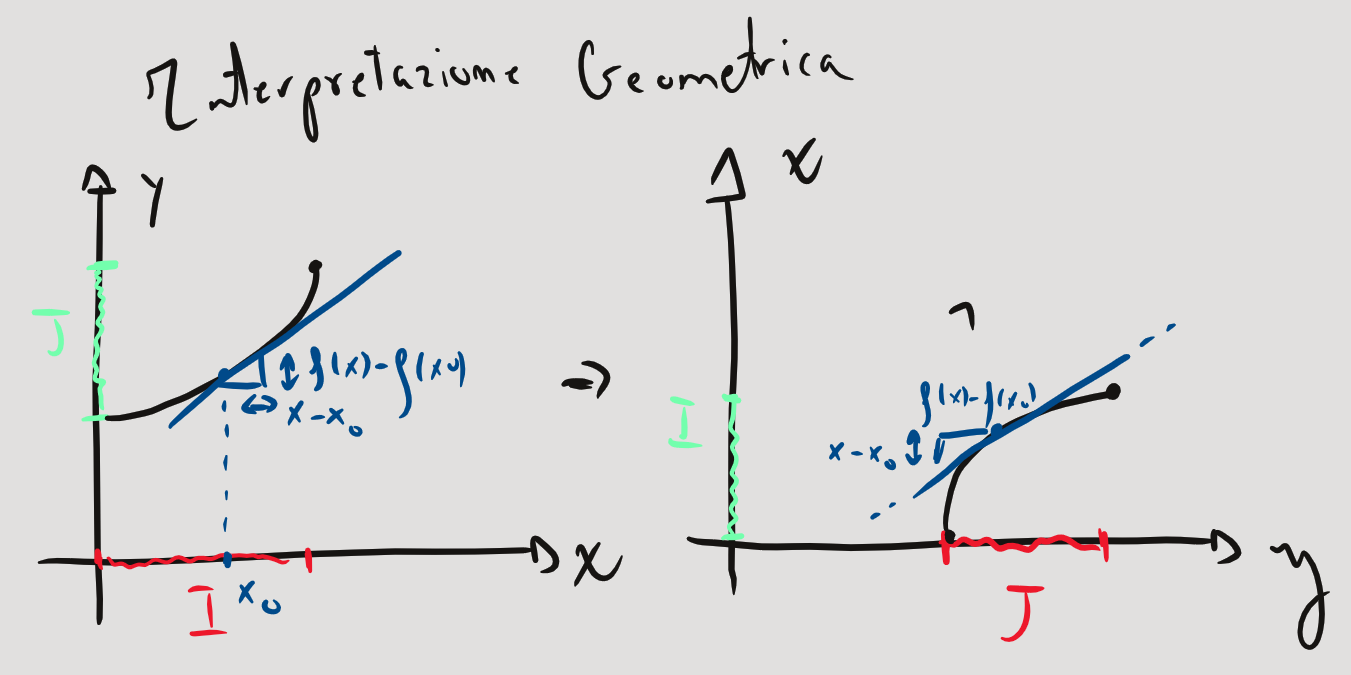 Interpretazione Geometrica
y
J
f(x)-f(x0)
x-x0
x
I
x0
x
I
f(x)-f(x0)
x-x0
y
J